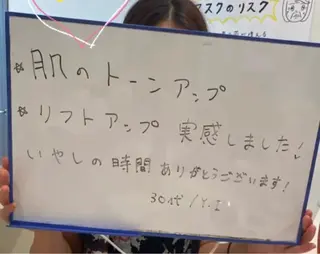 スクのリスク
☆肌のトーンアップ
☆リフトアップ 実感しました!
いやしの時間ありがとうございます!
30代/Y.I